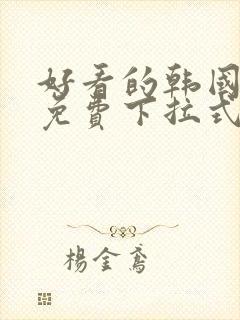 好看的韩国
免費下拉式
楊金鸢